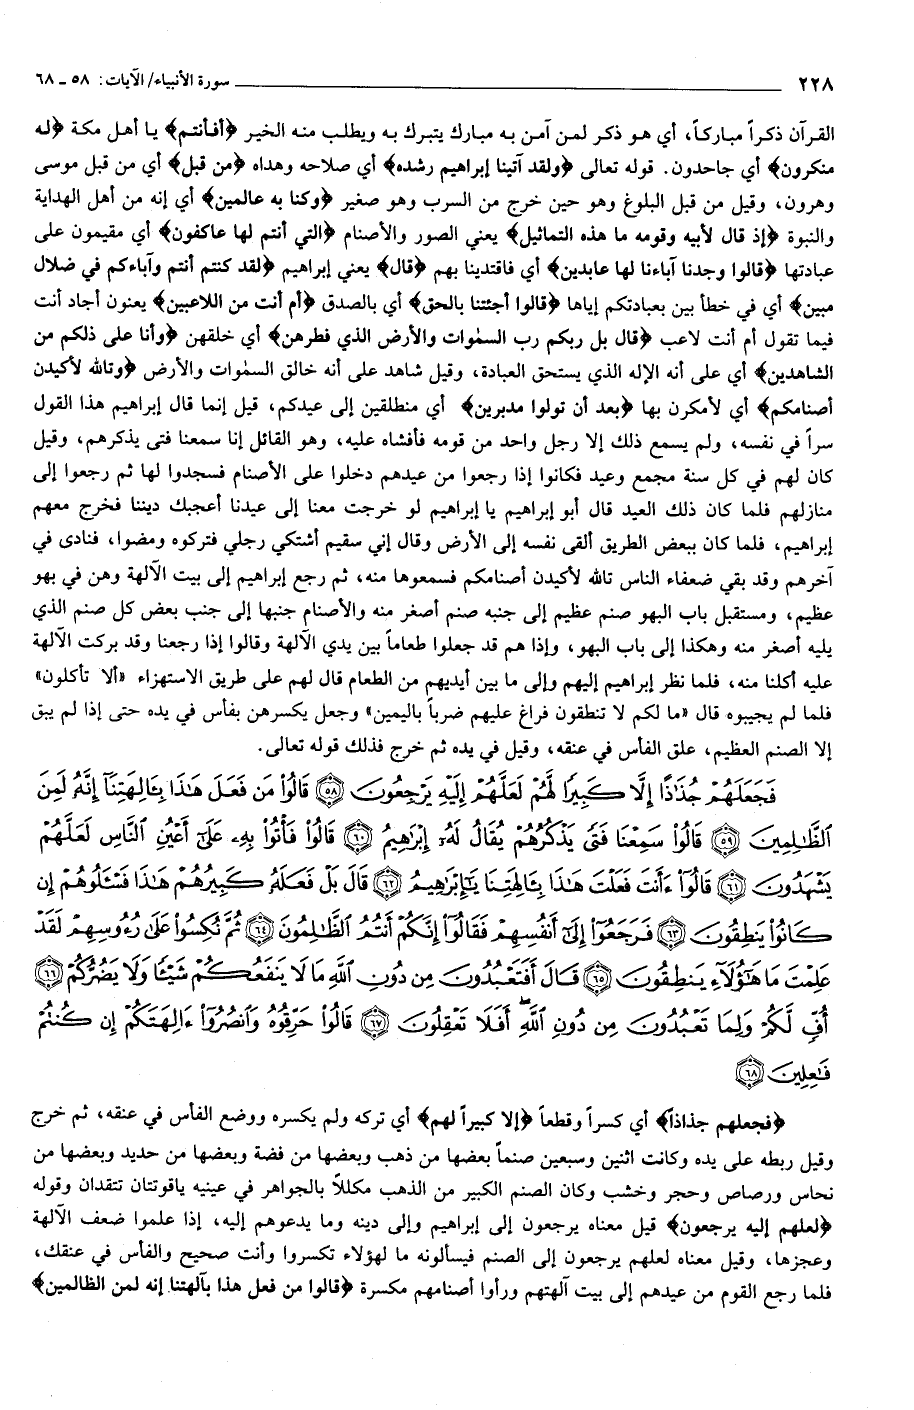 ٢٢٨ سورة الأنبياء/ الآيات: ٥٨ ـ ٦٨
القرآن ذكراً مباركاً، أي هو ذكر لمن آمن به مبارك يتبرك به ويطلب منه الخير ﴿أفأنتم﴾ يا أهل مكة ﴿له
منكرون﴾ أي جاحدون. قوله تعالى ﴿ولقد آتينا إبراهيم رشده﴾ أي صلاحه وهداه ﴿من قبل﴾ أي من قبل موسى
وهرون، وقيل من قبل البلوغ وهو حين خرج من السرب وهو صغير ﴿وكنا به عالمين﴾ أي إنه من أهل الهداية
والنبوة ﴿إذ قال لأبيه وقومه ما هذه التماثيل﴾ يعني الصور والأصنام ﴿التي أنتم لها عاكفون﴾ أي مقيمون على
عبادتها ﴿قالوا وجدنا آباءنا لها عابدين﴾ أي فاقتدينا بهم ﴿قال﴾ يعني إبراهيم ﴿لقد كنتم أنتم وآباءكم في ضلال
مبين﴾ أي في خطأ بين بعبادتكم إياها ﴿قالوا أجئتنا بالحق﴾ أي بالصدق ﴿أم أنت من اللاعبين﴾ يعنون أجاد أنت
فيما تقول أم أنت لاعب ﴿قال بل ربكم رب السمٰوات والأرض الذي فطرهن﴾ أي خلقهن ﴿وأنا على ذلكم من
الشاهدين﴾ أي على أنه الإله الذي يستحق العبادة، وقيل شاهد على أنه خالق السمٰوات والأرض ﴿وتالله لأكيدن
أصنامكم﴾ أي لأمكرن بها ﴿بعد أن تولوا مدبرين﴾ أي منطلقين إلى عيدكم، قيل إنما قال إبراهيم هذا القول
سراً في نفسه، ولم يسمع ذلك إلا رجل واحد من قومه فأفشاه عليه، وهو القائل إنا سمعنا فتى يذكرهم، وقيل
كان لهم في كل سنة مجمع وعيد فكانوا إذا رجعوا من عيدهم دخلوا على الأصنام فسجدوا لها ثم رجعوا إلى
منازلهم فلما كان ذلك العيد قال أبو إبراهيم يا إبراهيم لو خرجت معنا إلى عيدنا أعجبك ديننا فخرج معهم
إبراهيم، فلما كان ببعض الطريق ألقى نفسه إلى الأرض وقال إني سقيم أشتكي رجلي فتركوه ومضوا، فنادى في
آخرهم وقد بقي ضعفاء الناس تالله لأكيدن أصنامكم فسمعوها منه، ثم رجع إبراهيم إلى بيت الآلهة وهن في بهو
عظيم، ومستقبل باب البهو صنم عظيم إلى جنبه صنم أصغر منه والأصنام جنبها إلى جنب بعض كل صنم الذي
يليه أصغر منه وهكذا إلى باب البهو، وإذا هم قد جعلوا طعاماً بين يدي الآلهة وقالوا إذا رجعنا وقد بركت الآلهة
عليه أكلنا منه، فلما نظر إبراهيم إليهم وإلى ما بين أيديهم من الطعام قال لهم على طريق الاستهزاء «ألا تأكلون»
فلما لم يجيبوه قال «ما لكم لا تنطقون فراغ عليهم ضرباً باليمين» وجعل يكسرهن بفأس في يده حتى إذا لم يبق
إلا الصنم العظيم، علق الفأس في عنقه، وقيل في يده ثم خرج فذلك قوله تعالى.
فَجَعَلَهُمْ جُذَٰذًا إِلَّا كَبِيرًا لَّهُمْ لَعَلَّهُمْ إِلَيْهِ يَرْجِعُونَ ﴿٥٨﴾ قَالُوا۟ مَن فَعَلَ هَٰذَا بِـَٔالِهَتِنَآ إِنَّهُۥ لَمِنَ
ٱلظَّٰلِمِينَ ﴿٥٩﴾ قَالُوا۟ سَمِعْنَا فَتًى يَذْكُرُهُمْ يُقَالُ لَهُۥٓ إِبْرَٰهِيمُ ﴿٦٠﴾ قَالُوا۟ فَأْتُوا۟ بِهِۦ عَلَىٰٓ أَعْيُنِ ٱلنَّاسِ لَعَلَّهُمْ
يَشْهَدُونَ ﴿٦١﴾ قَالُوٓا۟ ءَأَنتَ فَعَلْتَ هَٰذَا بِـَٔالِهَتِنَا يَٰٓإِبْرَٰهِيمُ ﴿٦٢﴾ قَالَ بَلْ فَعَلَهُۥ كَبِيرُهُمْ هَٰذَا فَسْـَٔلُوهُمْ إِن
كَانُوا۟ يَنطِقُونَ ﴿٦٣﴾ فَرَجَعُوٓا۟ إِلَىٰٓ أَنفُسِهِمْ فَقَالُوٓا۟ إِنَّكُمْ أَنتُمُ ٱلظَّٰلِمُونَ ﴿٦٤﴾ ثُمَّ نُكِسُوا۟ عَلَىٰ رُءُوسِهِمْ لَقَدْ
عَلِمْتَ مَا هَٰٓؤُلَآءِ يَنطِقُونَ ﴿٦٥﴾ قَالَ أَفَتَعْبُدُونَ مِن دُونِ ٱللَّهِ مَا لَا يَنفَعُكُمْ شَيْـًٔا وَلَا يَضُرُّكُمْ ﴿٦٦﴾
أُفٍّ لَّكُمْ وَلِمَا تَعْبُدُونَ مِن دُونِ ٱللَّهِ ۖ أَفَلَا تَعْقِلُونَ ﴿٦٧﴾ قَالُوا۟ حَرِّقُوهُ وَٱنصُرُوٓا۟ ءَالِهَتَكُمْ إِن كُنتُمْ
فَٰعِلِينَ ﴿٦٨﴾
﴿فجعلهم جذاذاً﴾ أي كسراً وقطعاً ﴿إلا كبيراً لهم﴾ أي تركه ولم يكسره ووضع الفأس في عنقه، ثم خرج
وقيل ربطه على يده وكانت اثنين وسبعين صنماً بعضها من ذهب وبعضها من فضة وبعضها من حديد وبعضها من
نحاس ورصاص وحجر وخشب وكان الصنم الكبير من الذهب مكللاً بالجواهر في عينيه ياقوتتان تتقدان وقوله
﴿لعلهم إليه يرجعون﴾ قيل معناه يرجعون إلى إبراهيم وإلى دينه وما يدعوهم إليه، إذا علموا ضعف الآلهة
وعجزها، وقيل معناه لعلهم يرجعون إلى الصنم فيسألونه ما لهؤلاء تكسروا وأنت صحيح والفأس في عنقك،
فلما رجع القوم من عيدهم إلى بيت آلهتهم ورأوا أصنامهم مكسرة ﴿قالوا من فعل هذا بآلهتنا إنه لمن الظالمين﴾